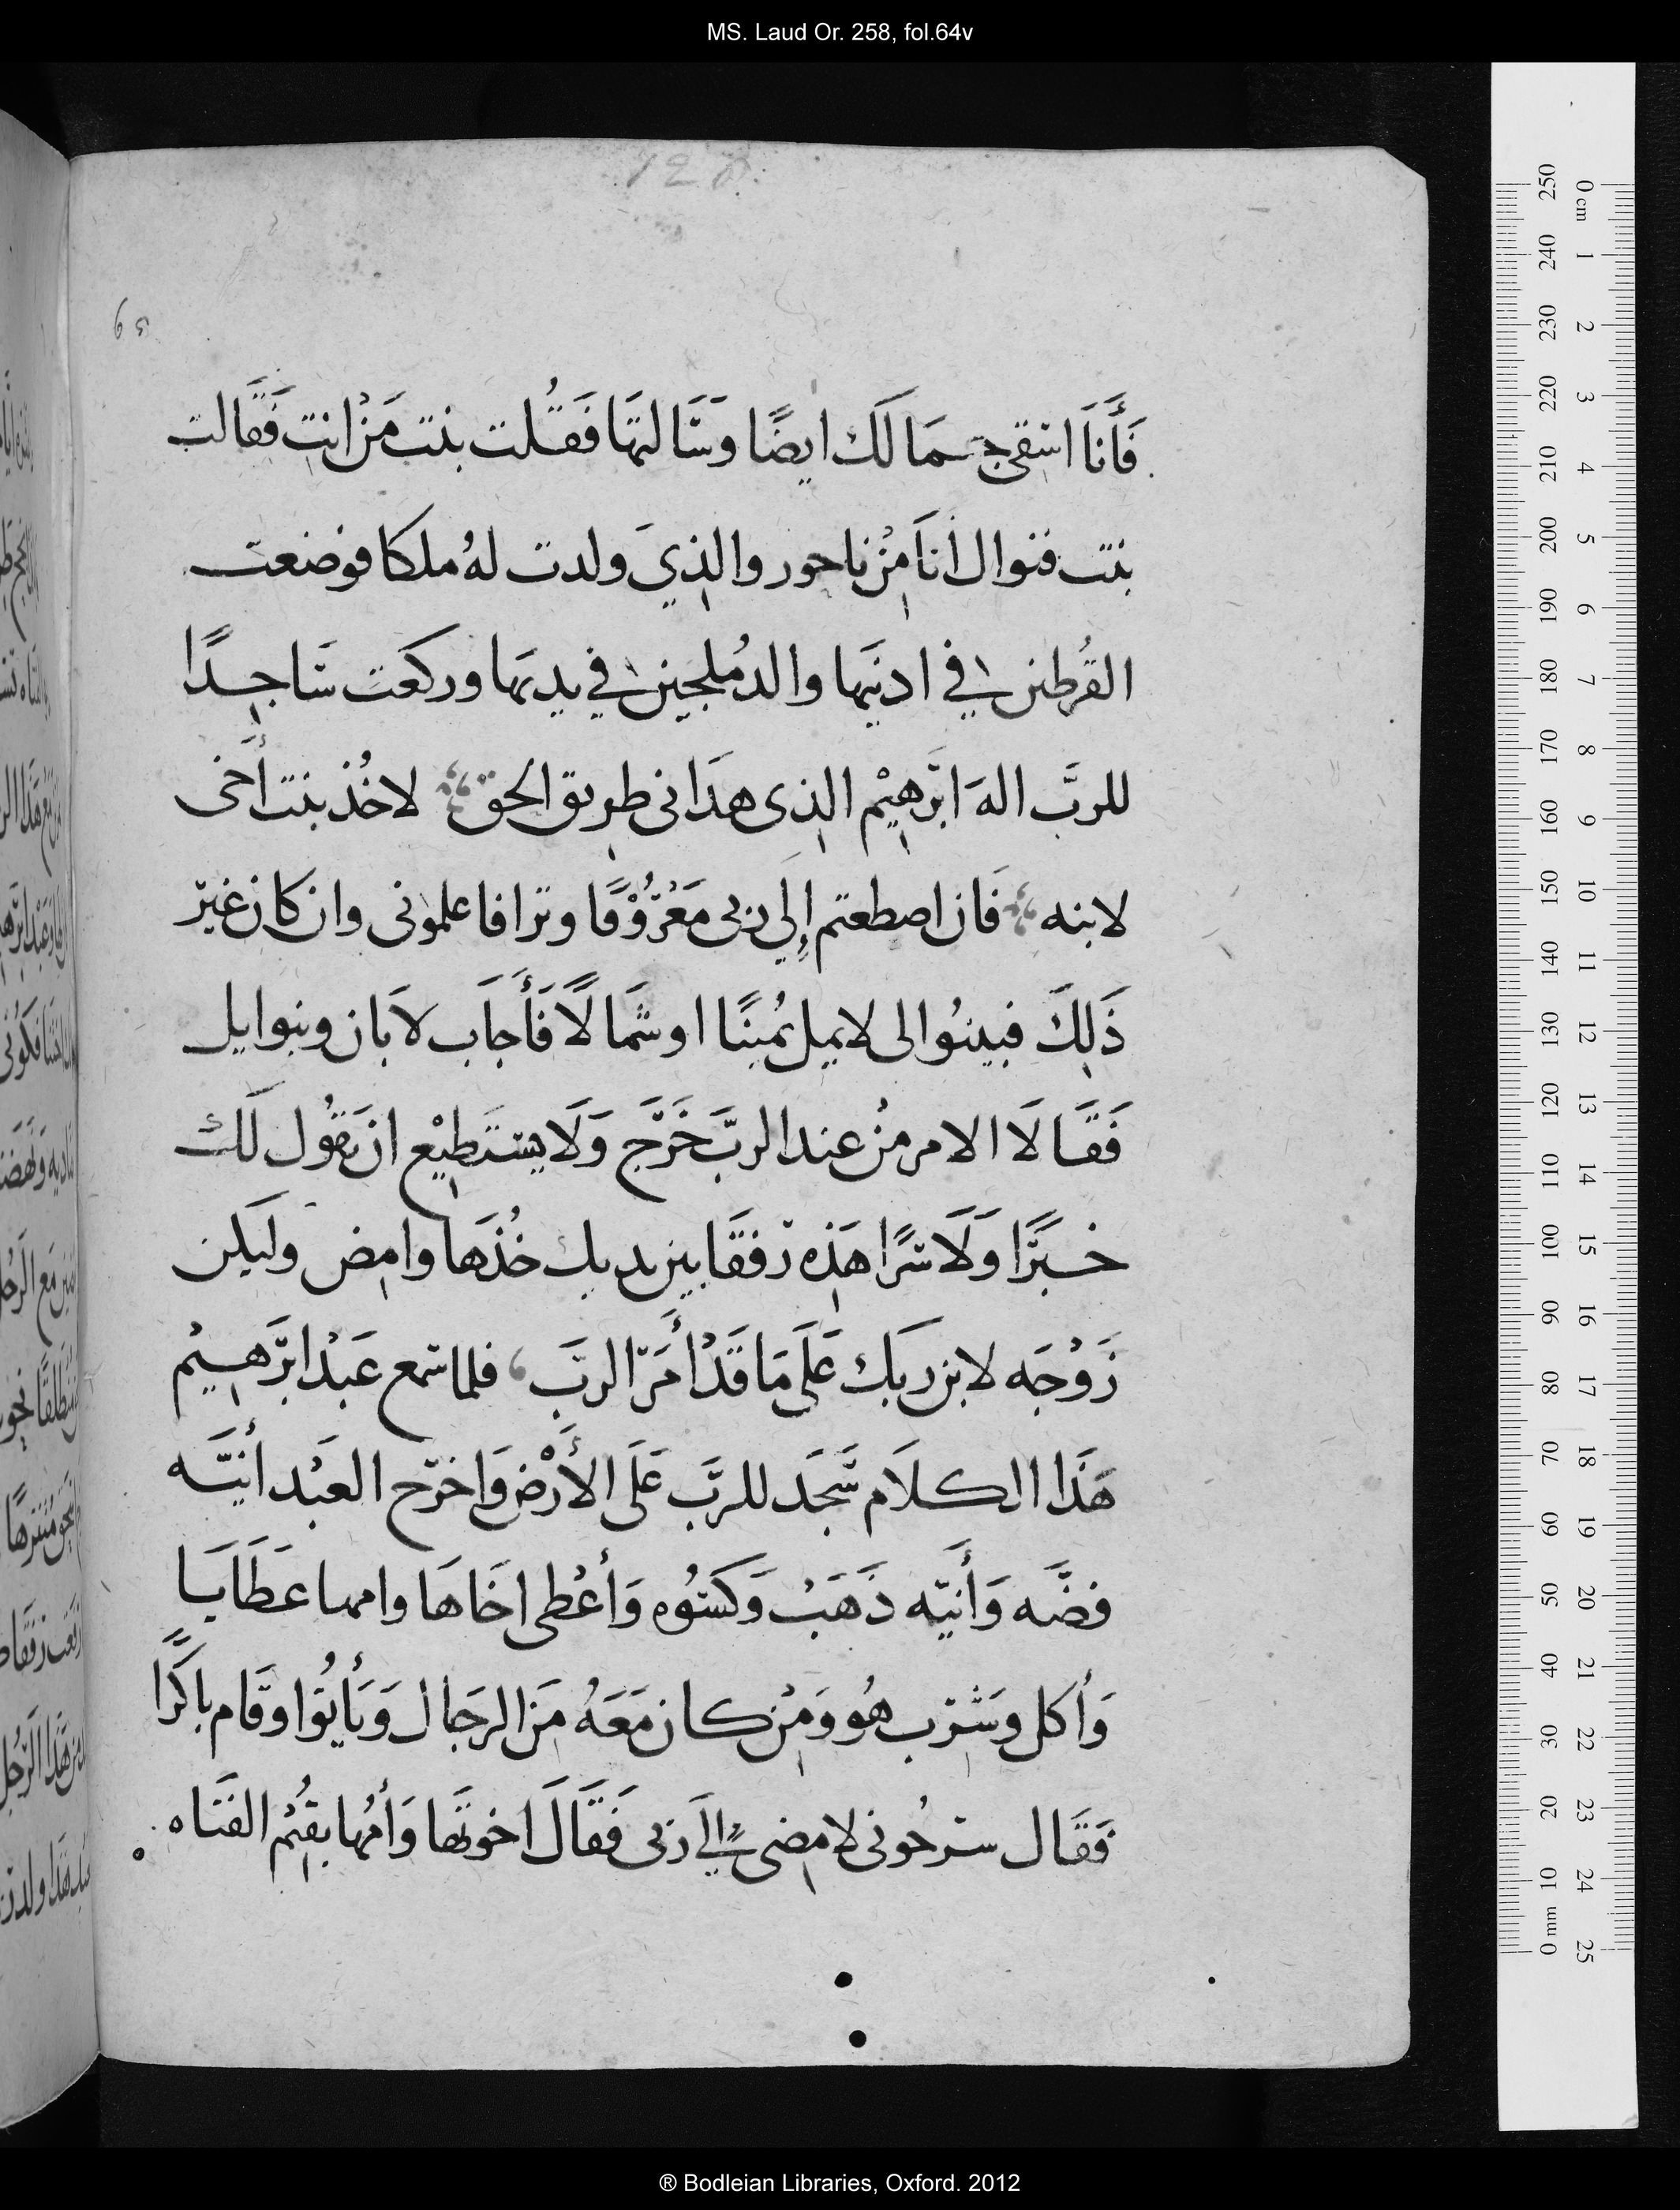 MS. Laud Or. 258, fol.64v
فَأَنَا استقى جمَالَك ايضًا وَسَالتهَا فَقُلت بنت مَنْ انت فَقَالت
بنت فنوال أنَا مِنْ ناحور والذِيَ ولدت لهُ ملكا فوضعت
القُرطين في ادنيَها والدُملجين في يديهَا وركعَت سَاجِدًا
للربَّ الهَ ابرَهِيْم الذِى هدَانى طرِيق الحق لاخُذ بنت أخَى
لابنه فَان اصطعتم إِلي ربى مَعْرُوْفًا وترافا علموٰنى وان كان غيَر
ذَلِكَ فبينُوا لى لاميل يُمينًا او شَمالًا فَأَجاَب لاَبان وبنوايل
فَقَالَا الامر منُ عند الربَّ خَرَج وَلَا يستَطِيْع ان يقُول لَك
خبَرًا وَلَا شرًا هَذِه رفقَا بين يديك خُذَها وامِض وليَكن
زَوْجَه لابن ربَك عَلَى مَا قَدْ أَمَر الربَ فلما سمع عَبَدْ ابرَهِيْم
هَذَا الكلَام سَجَد للربَّ عَلَى الأَرْض وَاخرَج العَبْد أنيَه
فضَّه وَأَنيَه ذَهَبْ وَكسَوُه وَأعْطى اخَاهَا وامها عَطَايَا
وَأكل وشَرِب هُو ومِنْ كان مَعَهُ مَن الرجَال وَبَأتُوا وقَام باكرًا
فقَال سرحُونى لامِضى إِليَ ربى فَقَالَ اخوتَها وَأمُها بقِيُم الفتَاه
0 cm 1 2 3 4 5 6 7 8 9 10 11 12 13 14 15 16 17 18 19 20 21 22 23 24 25
250 240 230 220 210 200 190 180 170 160 150 140 130 120 110 100 90 80 70 60 50 40 30 20 10 0 mm
® Bodleian Libraries, Oxford. 2012